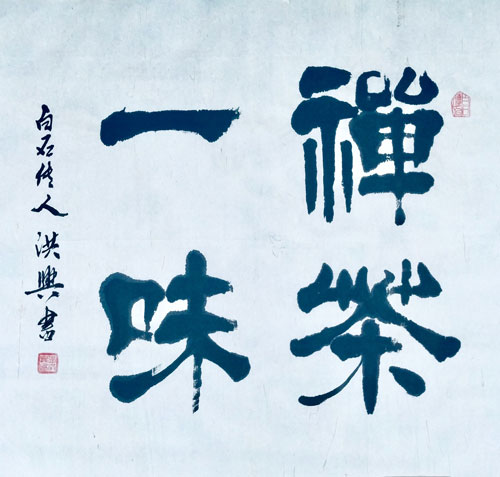 禪茶
一味
白石传人洪興書